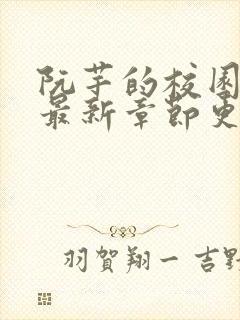 阮芋的校园
最新章节更
羽賀翔一 吉野